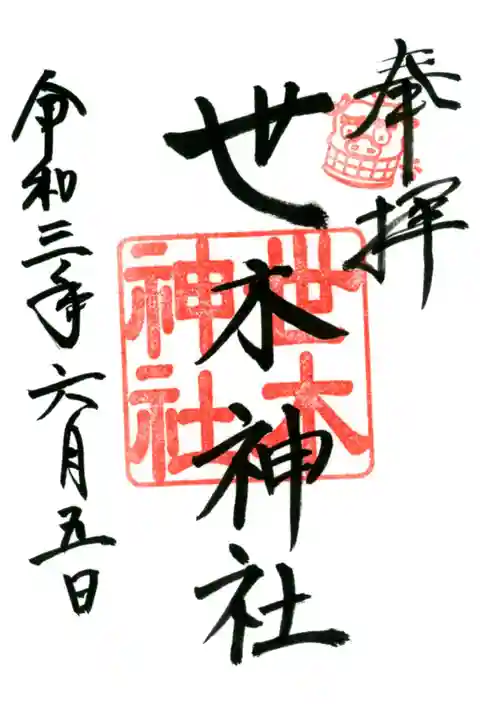 奉拝
世木神社
世木神社
令和三年六月五日